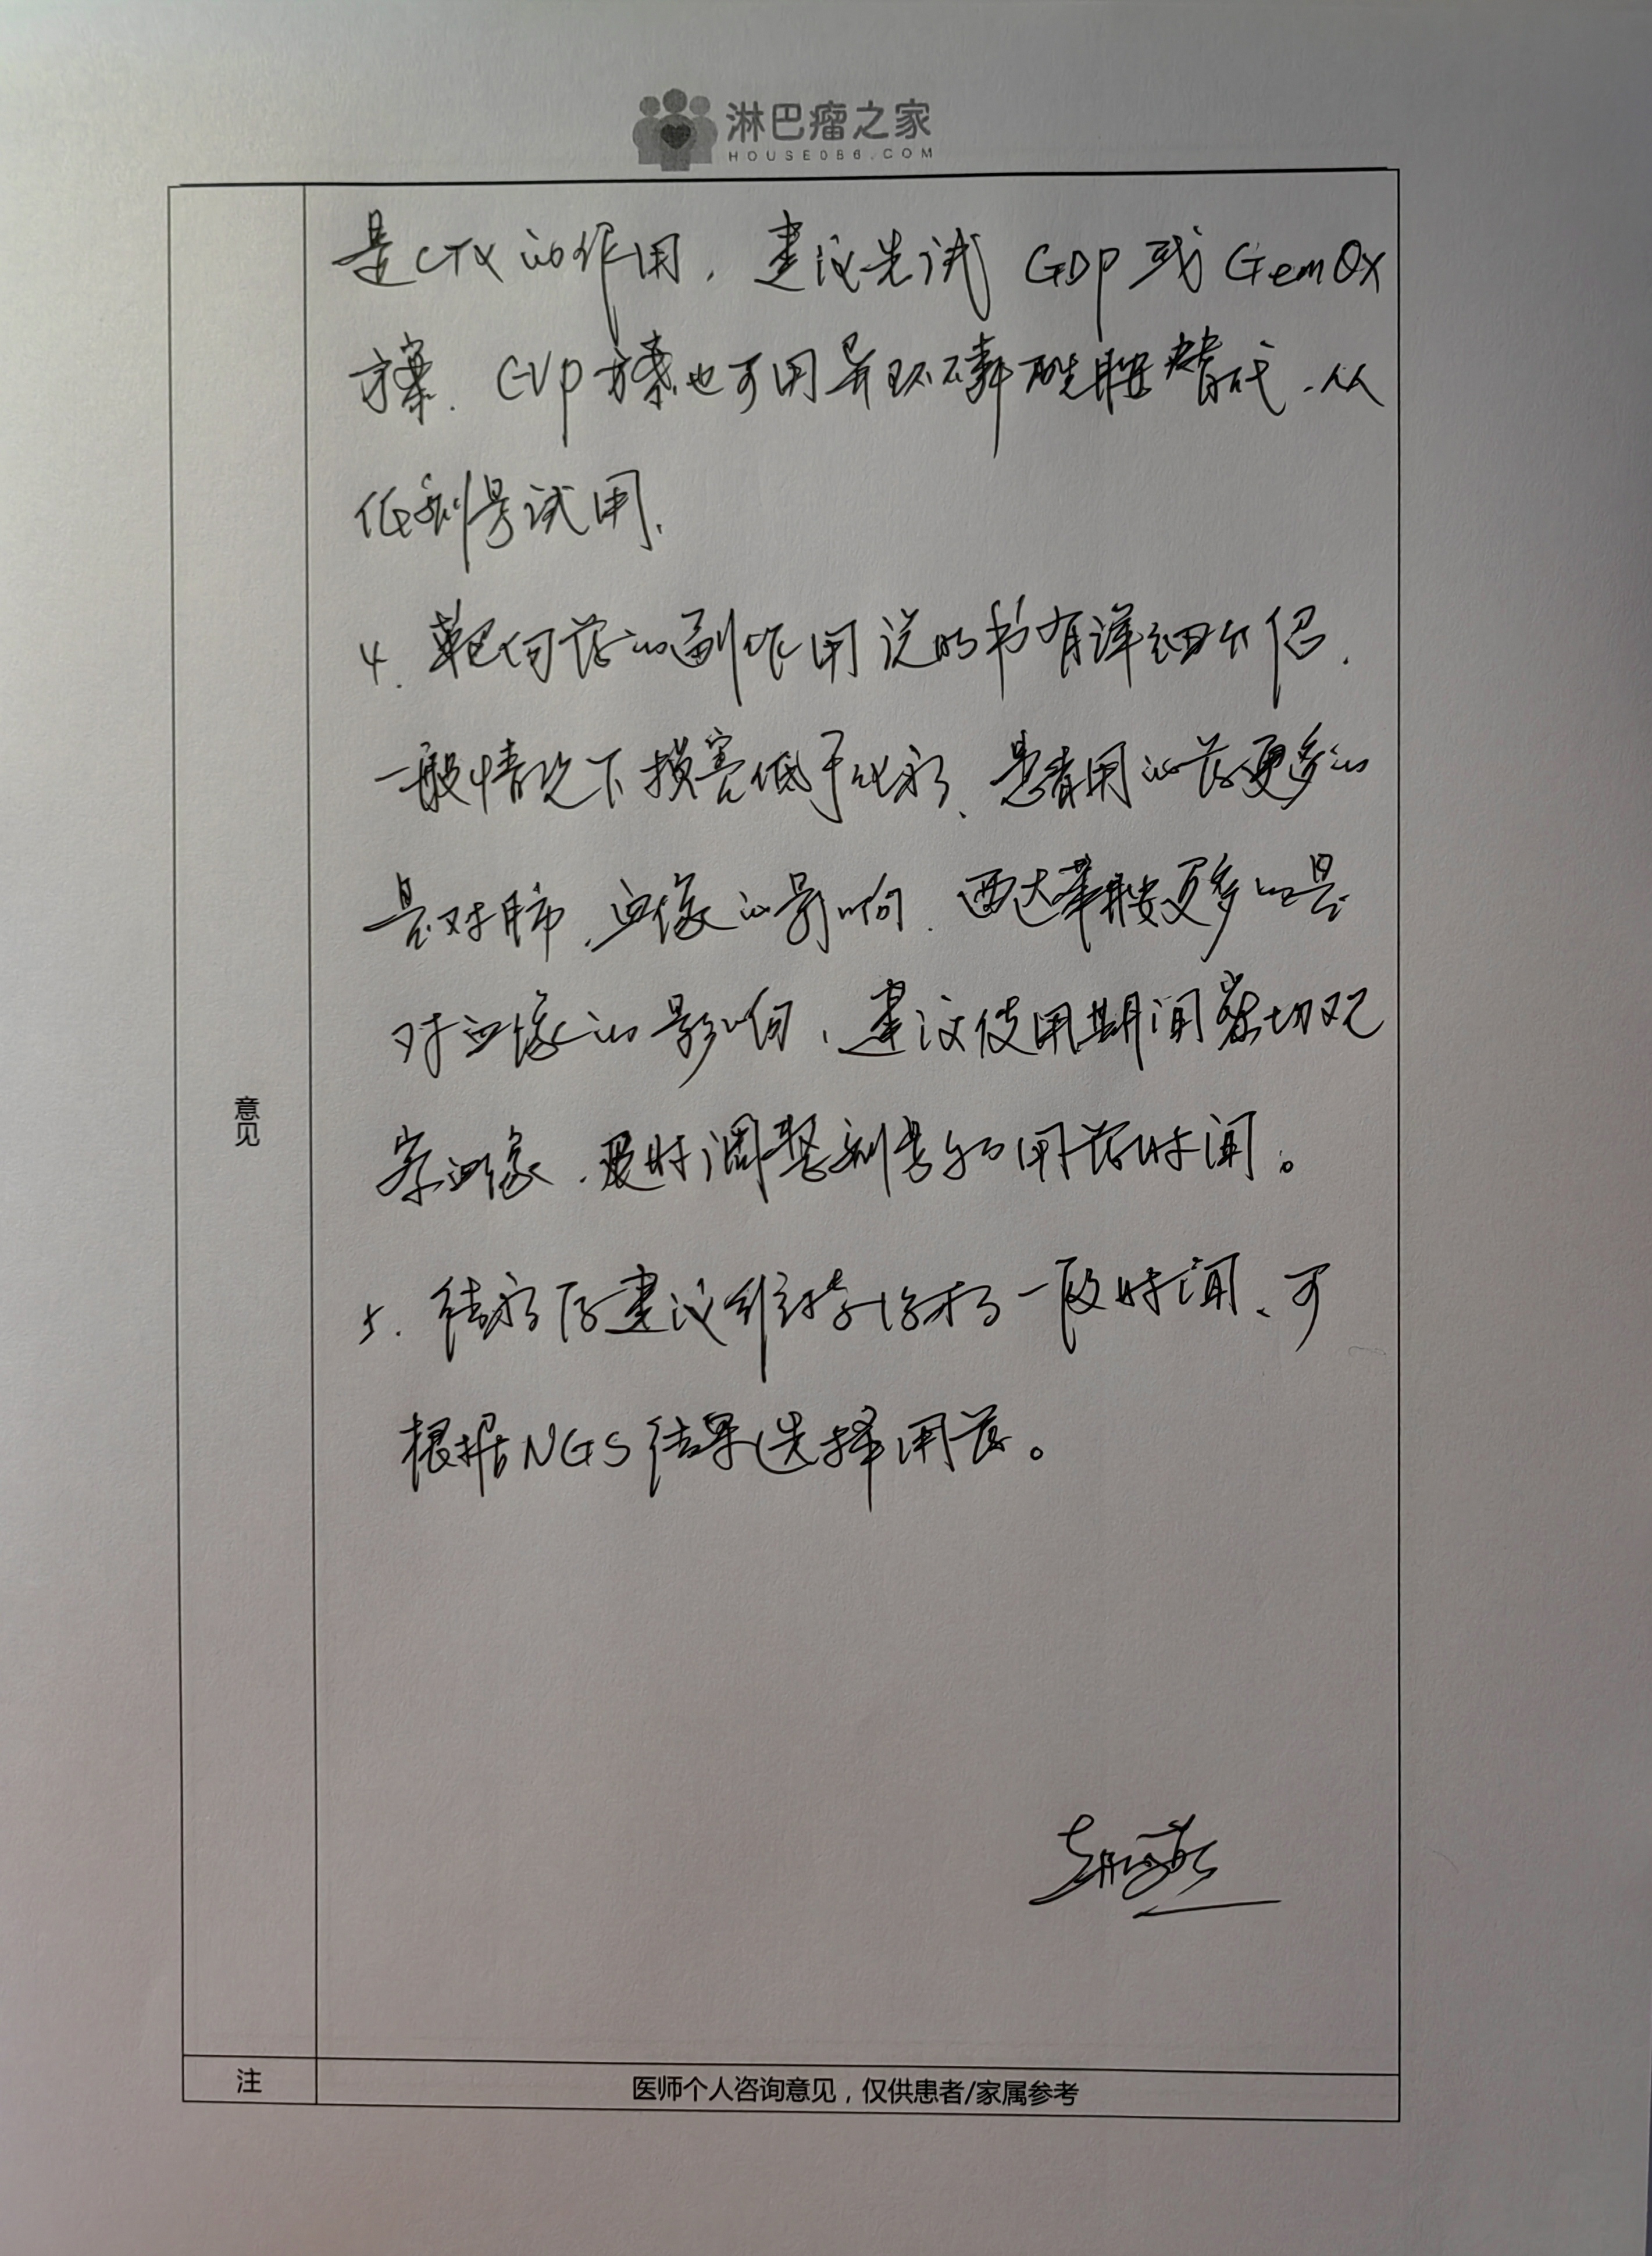 淋巴瘤之家
HOUSE086.COM
是CTX的作用，建议先试GDP或GemOx
方案．CVP方案也可用异环磷酰胺替代、从
低剂量试用．
4．靶向药的副作用说明书有详细介绍．
一般情况下损害低于化疗、患者用的药更多的
是对肺、血像的影响．西达苯胺更多的是
对血像的影响，建议使用期间密切观
察血像．及时调整剂量和用药时间。
5．结疗后建议维持治疗一段时间、可
根据NGS结果选择用药。
意见
注
医师个人咨询意见，仅供患者/家属参考